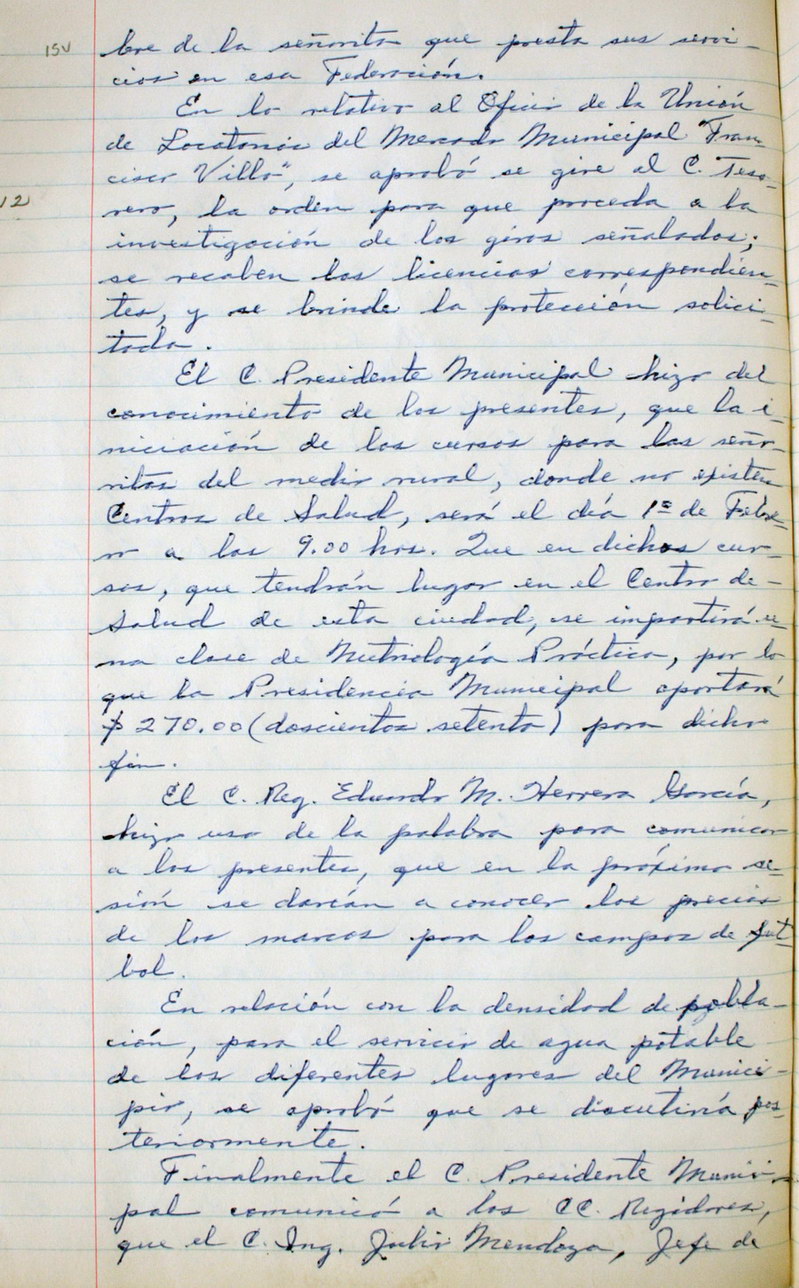 15v
bre de la señorita que presta sus servi-
cios en esa Federación.
En lo relativo al Oficio de la Unión
de Locatarios del Mercado Municipal "Fran-
cisco Villa", se aprobó se gire al C. Teso-
12
rero, la orden para que proceda a la
investigación de los giros señalados;
se recaben las licencias correspondien-
tes, y se brinde la protección solici-
tada.
El C. Presidente Municipal hizo del
conocimiento de los presentes, que la i-
niciación de los cursos para las seño-
ritas del medio rural, donde no existen
Centros de Salud, será el día 1º de Febre-
ro a las 9.00 hrs. Que en dichos cur-
sos, que tendrán lugar en el Centro de
Salud de esta ciudad, se impartirá u-
na clase de Nutriología Práctica, por lo
que la Presidencia Municipal aportará
$ 270.00 (doscientos setenta) para dicho
fin.
El C. Reg. Eduardo M. Herrera García,
hizo uso de la palabra para comunicar
a los presentes, que en la próxima se-
sión se darían a conocer los precios
de los marcos para los campos de fut-
bol.
En relación con la densidad de pobla-
ción, para el servicio de agua potable
de los diferentes lugares del Munici-
pio, se aprobó que se discutiría pos-
teriormente.
Finalmente el C. Presidente Munici-
pal comunicó a los CC. Regidores,
que el C. Ing. Julio Mendoza, Jefe de